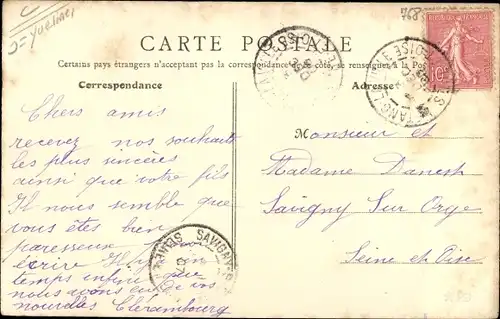 D= Yvelines
768
CARTE POSTALE
Certains pays étrangers n'acceptant pas la correspondance de ce côté, se renseigner à la Poste
Correspondance
Adresse
10
Chers amis
recevez nos souhaits
les plus sincères
ainsi que votre fils
Il nous semble que
vous êtes bien
paresseux
écrire Il y a un
temps infini que
nous avons eu de vos
nouvelles Clérambourg
Monsieur et
Madame Danest
Savigny Sur Orge
Seine et Oise
SAVIGNY